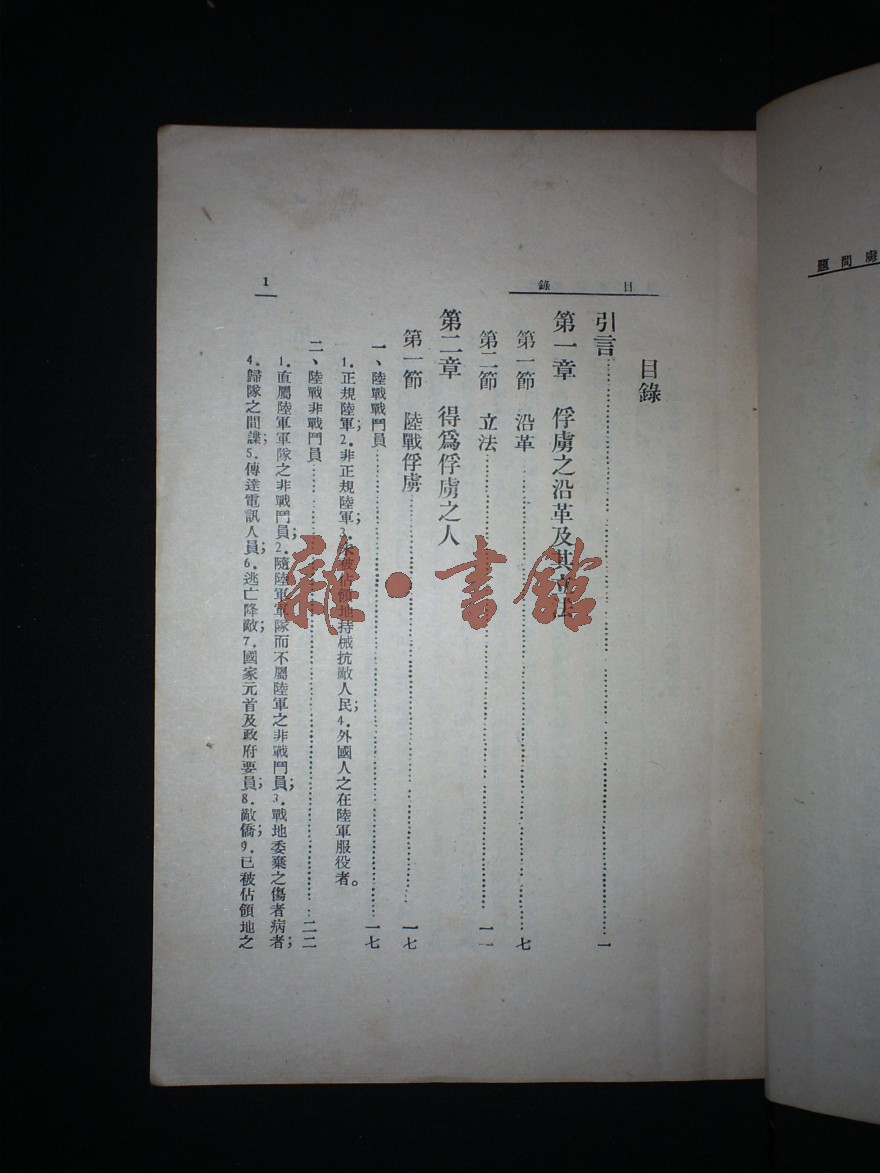 虜問題
目錄
1
目錄
引言……一
第一章 俘虜之沿革及其立法
第一節 沿革……七
第二節 立法……一一
第二章 得為俘虜之人
第一節 陸戰俘虜……一七
一、陸戰戰鬥員……一七
1.正規陸軍；2.非正規陸軍；3.未被佔領地持械抗敵人民；4.外國人之在陸軍服役者。
二、陸戰非戰鬥員……二二
1.直屬陸軍軍隊之非戰鬥員；2.隨陸軍軍隊而不屬陸軍之非戰鬥員；3.戰地委棄之傷者病者；
4.歸隊之間諜；5.傳達電訊人員；6.逃亡降敵；7.國家元首及政府要員；8.敵僑；9.已被佔領地之
雜·書館